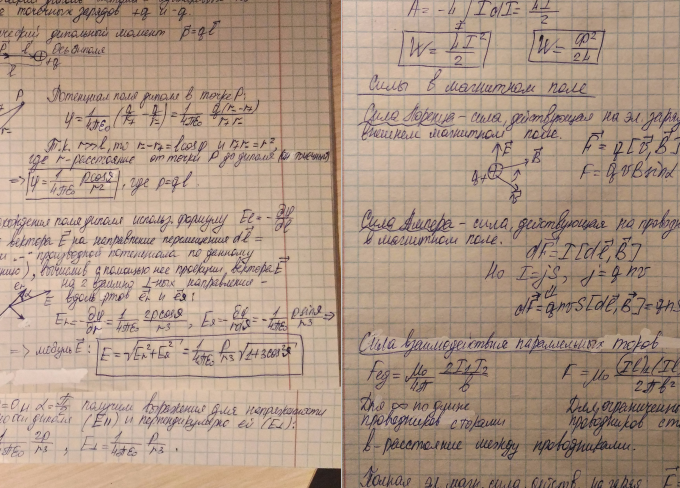 точечных зарядов +q и -q.
дипольный момент p⃗ = qℓ⃗
P ℓ Ось диполя
+q
ℓ
P
Потенциал поля диполя в точке P:
φ = 1/4πε₀ (q/r₊ - q/r₋) = 1/4πε₀ q(r₋-r₊)/r₊r₋
Т.к. r>>ℓ, то r₋-r₊ = ℓcosϑ и r₊r₋ = r²,
где r - расстояние от точки P до диполя,
=> φ = 1/4πε₀ pcosϑ/r², где p = qℓ.
поля диполя использ. формулу Eℓ = -∂φ/∂ℓ
вектора E⃗ на направление перемещения dℓ⃗ =
производной потенциала по данному
, вычислив с помощью нее проекции вектора E⃗
на 2 взаимно ⊥-ных направления -
E⃗ вдоль ортов
Er = -∂φ/∂r = 1/4πε₀ 2pcosϑ/r³, Eϑ = -∂φ/r∂ϑ = 1/4πε₀ psinϑ/r³ =>
=> модуль E⃗: E = √Er²+Eϑ² = 1/4πε₀ p/r³ √1+3cos²ϑ
=0 и получим выражения для напряженности
диполя (E||) и перпендикулярно ей (E⊥):
1/4πε₀ 2p/r³, E⊥ = 1/4πε₀ p/r³.
A = -4 ∫ I dI = LI²/2
W = LI²/2 W = Φ²/2L
Силы в магнитном поле
Сила Лоренца - сила, действующая на эл. заряд
внешнем магнитном поле.
F⃗ B⃗ F⃗ = q[v⃗,B⃗]
q+ F = qvBsinα
Сила Ампера - сила, действующая на
в магнитном поле.
dF⃗ = I[dℓ⃗,B⃗]
Но I = jS, j = qnv
dF⃗ = qnvS[dℓ⃗,B⃗] = qnS
Сила взаимодействия параллельных токов.
Fед = μ₀/4π 2I₁I₂/b F = μ₀
Для ∞ по длине
проводников
b - расстояние между проводниками.
Полная эл. магн. сила, действ. на заряд: F⃗ =